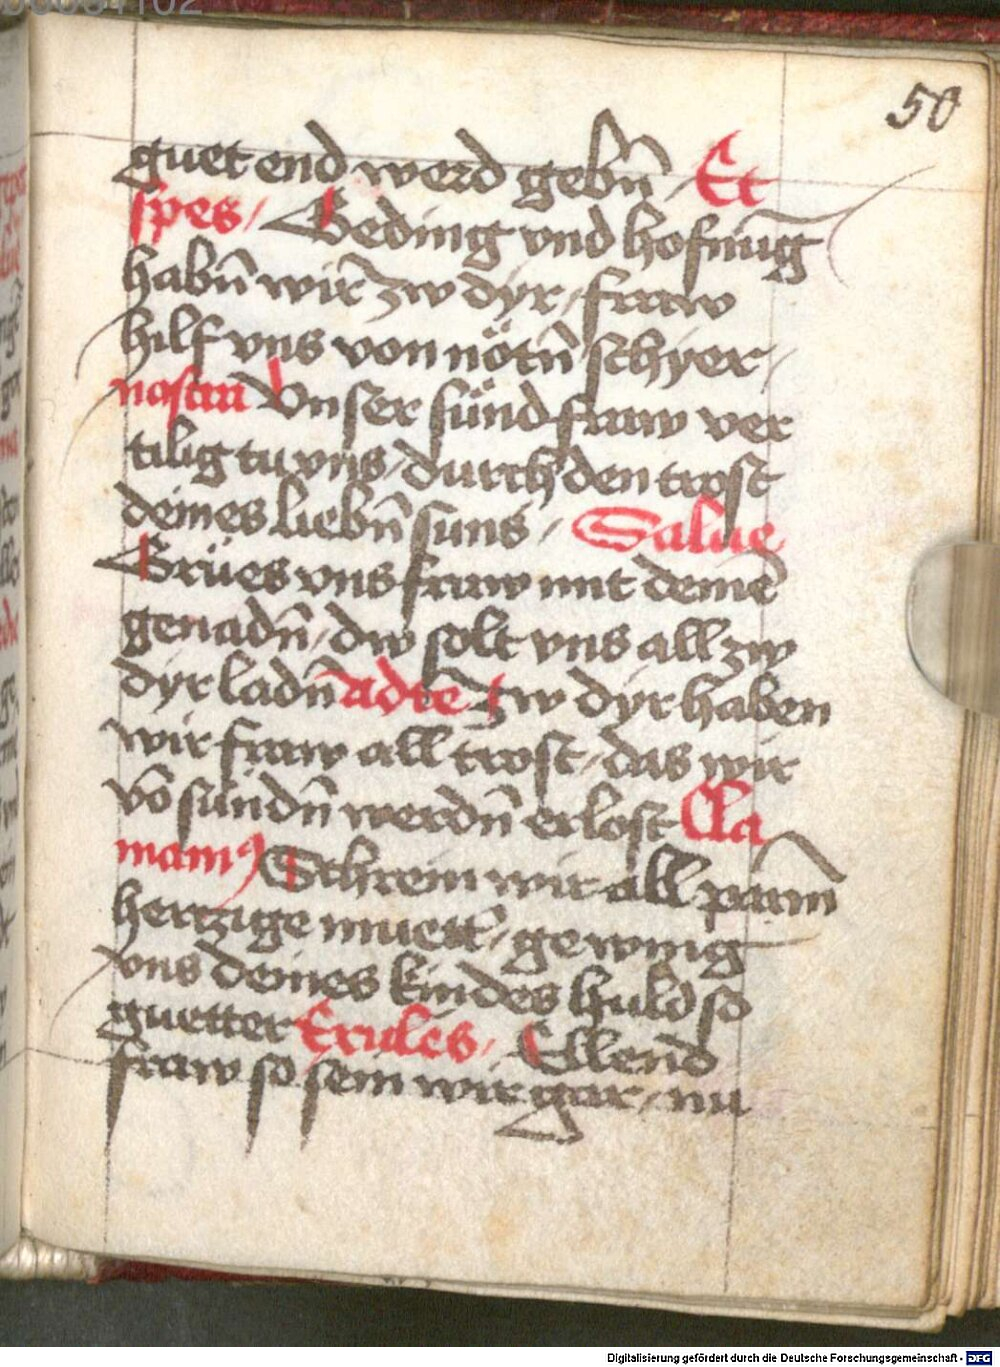 50
guet end werd gebn̄ / Et
spes / Geding vnd hofnūg
habn̄ wir zw dyr / fraw
hilf vns von nötn̄ schyer /
nostra Vnser sünd fraw ver
tilig tu vns / durch den trost
deines liebn̄ suns / Salue
Grües vns fraw mit deinē
genadn̄ / dw solt vns all zw
dyr ladn̄ Ad te Zw dyr haben
wir fraw all trost / das wir
vō sündn̄ werdn̄ erlost Cla
mamꝰ Schrein wir all parm̄
hertzige muett̄ / gewing
vns deines kindes huld so
guetter Exules / Ellend
fraw so sein wir gar / nu
Digitalisierung gefördert durch die Deutsche Forschungsgemeinschaft - DFG